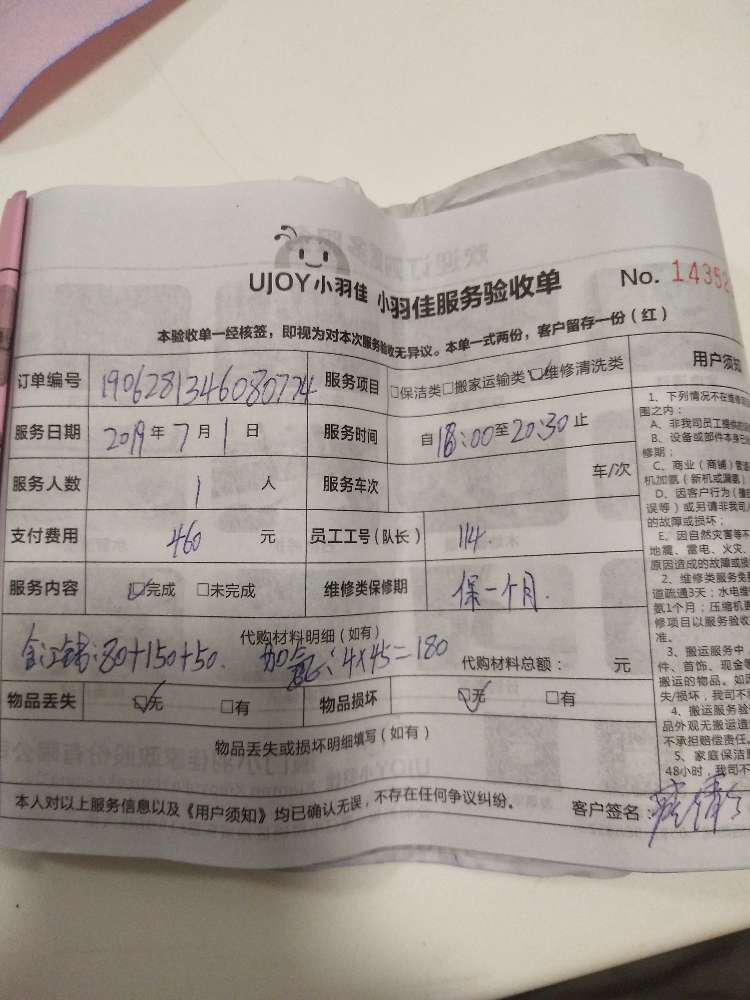 UJOY小羽佳 小羽佳服务验收单 No. 14352
本验收单一经核签，即视为对本次服务验收无异议。本单一式两份，客户留存一份（红）
订单编号 1906281346080774 服务项目 □保洁类□搬家运输类☑维修清洗类 用户须知
服务日期 2019年7月1日 服务时间 自18:00至20:30止
服务人数 1 人 服务车次 车/次
支付费用 460 元 员工工号（队长） 114
服务内容 ☑完成 □未完成 维修类保修期 保一个月.
代购材料明细（如有）
:80+150+50. 加氟:4×45=180 代购材料总额： 元
物品丢失 ☑无 □有 物品损坏 ☑无 □有
物品丢失或损坏明细填写（如有）
本人对以上服务信息以及《用户须知》均已确认无误，不存在任何争议纠纷。 客户签名:
1、下列情况不在维修
围之内：
A、非我司员工提供
B、设备或部件本身已
修期；
C、商业（商铺）管道
机加氨（新机或漏氨）
D、因客户行为（擅
误等）或另请非我司
的故障或损坏；
E、因自然灾害等不
地震、雷电、火灾、
原因造成的故障或损
2、维修类服务免
道疏通3天；水电维
氨1个月；压缩机更
修项目以服务验收
准。
3、搬运服务中，
件、首饰、现金等
搬运的物品。如因
失/损坏，我司不
4、搬运服务验
品外观无搬运造
不承担赔偿责任。
5、家庭保洁服
48小时，我司不